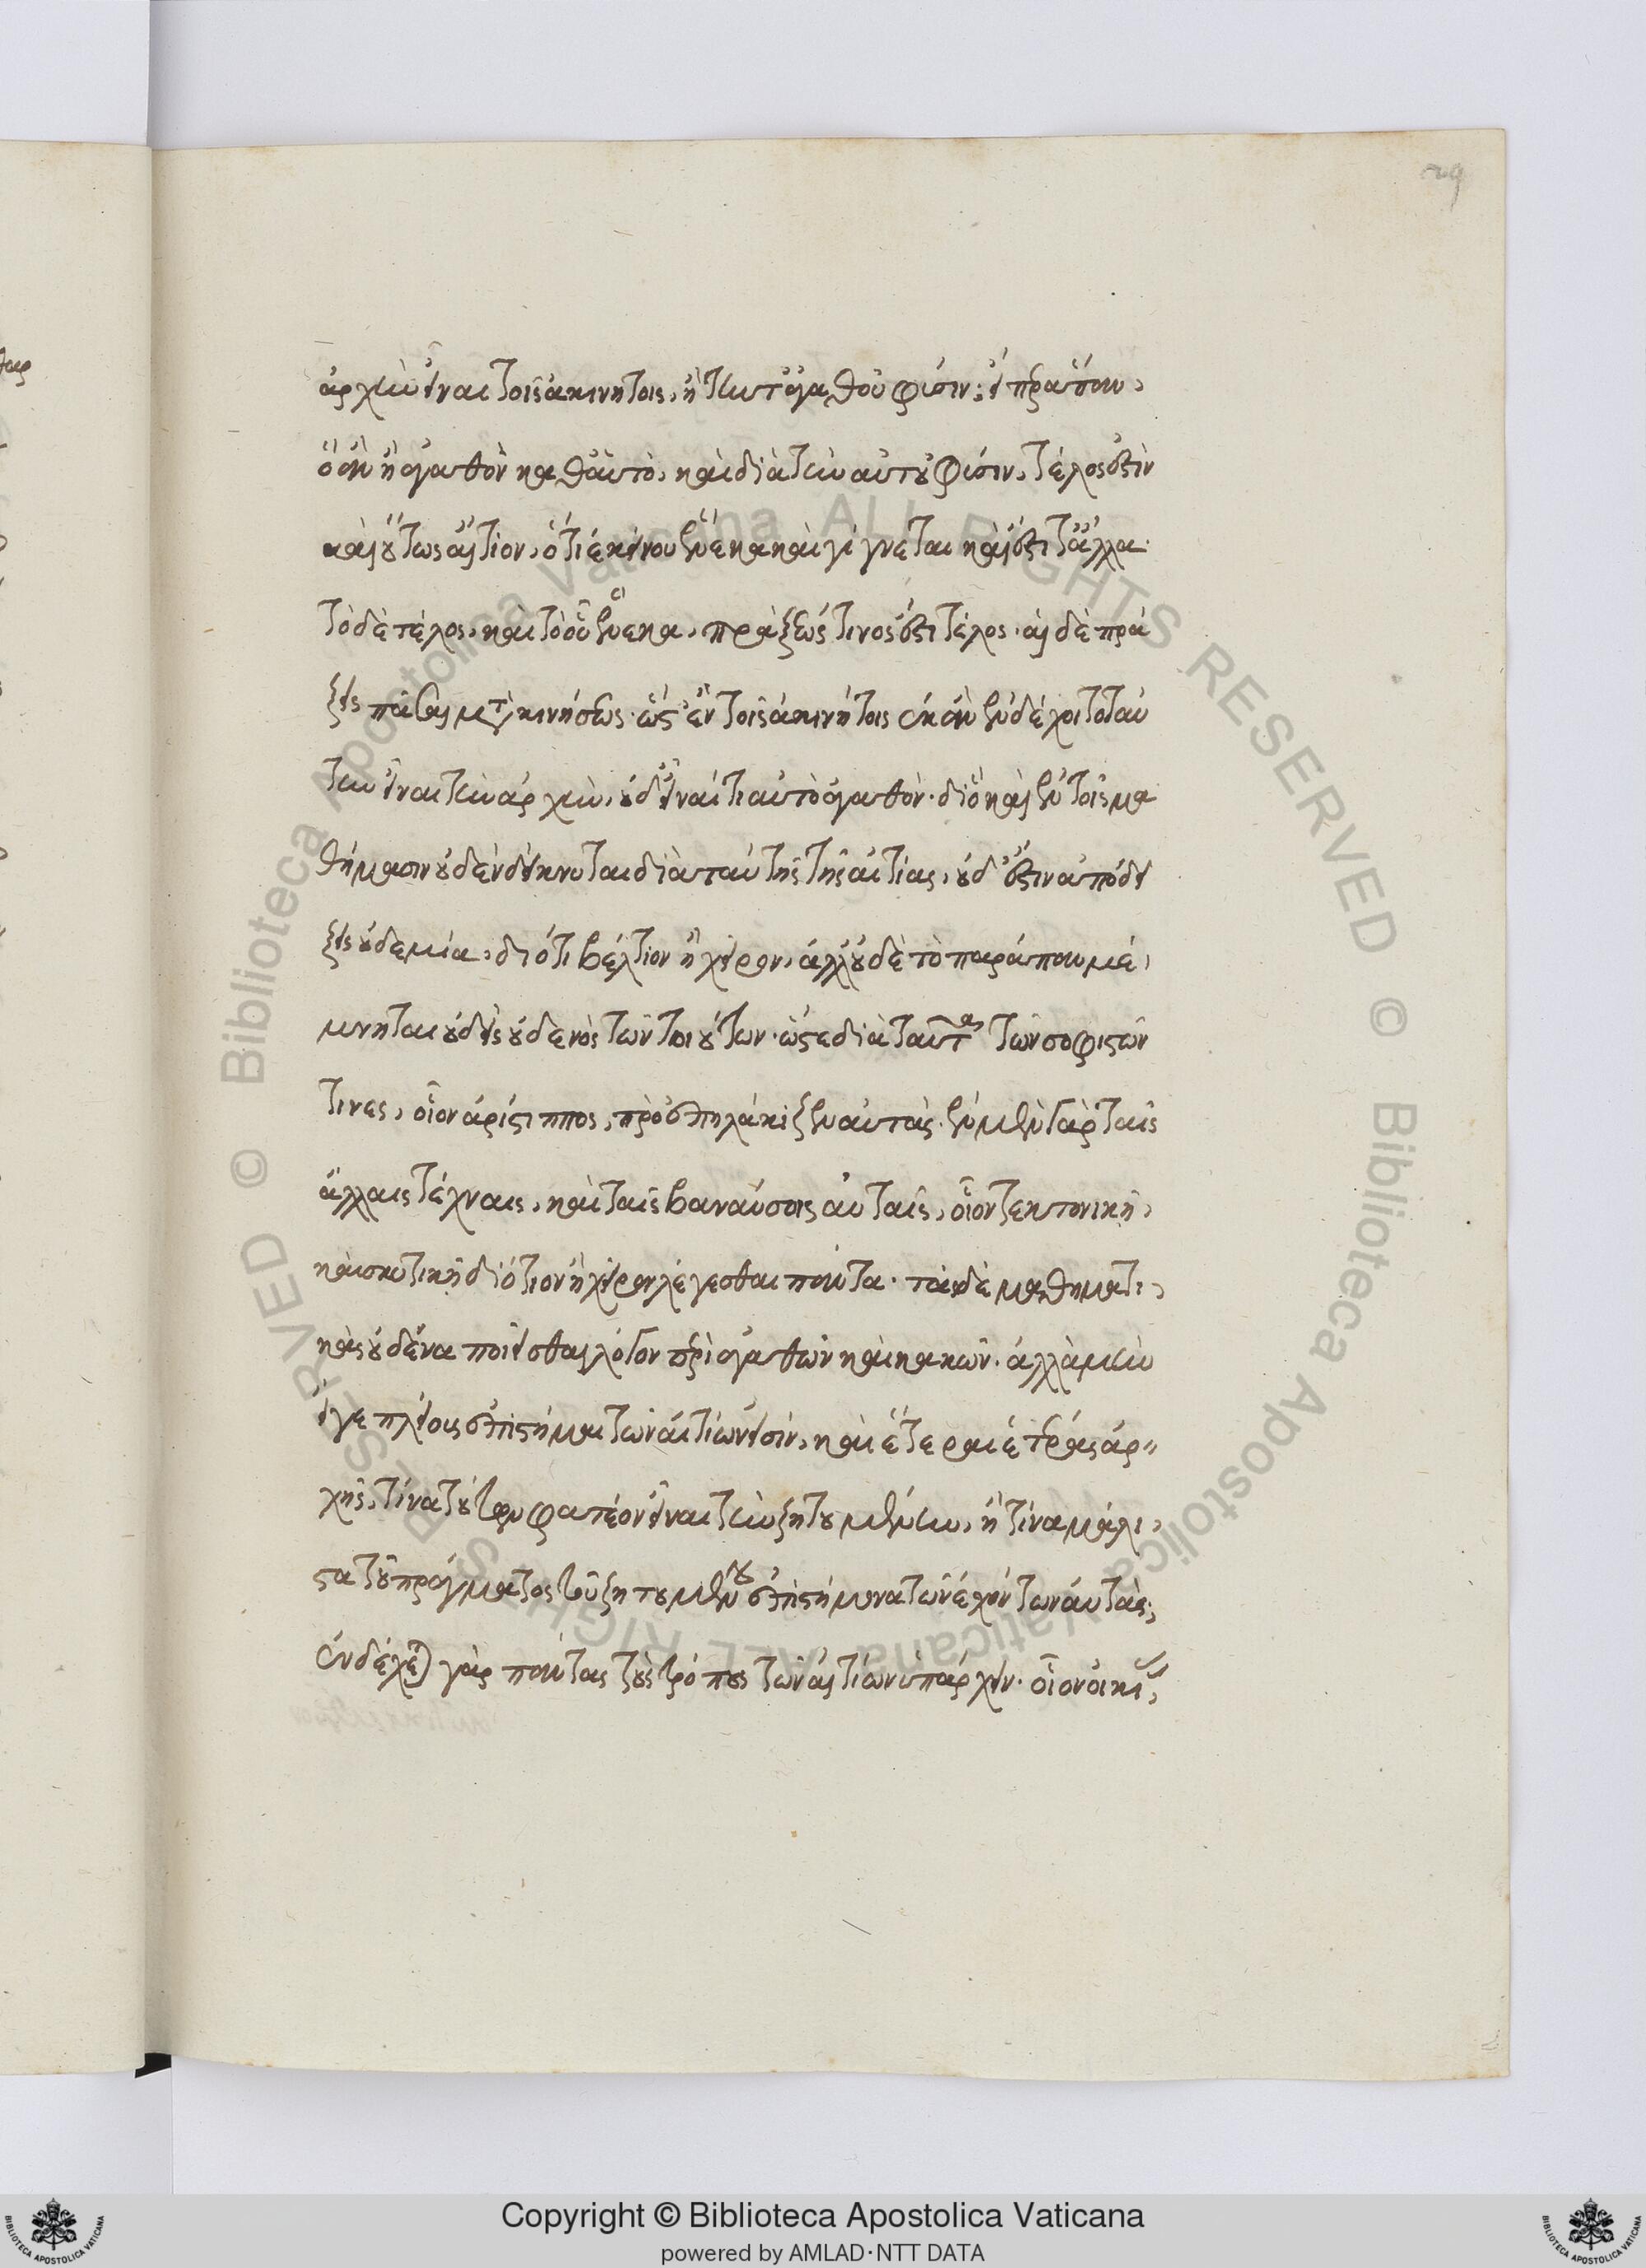 29
ἀρχὴν εἶναι τοῖς ἀκινήτοις, ἢ τὴν τἀγαθοῦ φύσιν; εἴπερ ἅπαν,
ὃ ἂν ᾖ ἀγαθὸν καθ' αὑτὸ, καὶ διὰ τὴν αὐτοῦ φύσιν, τέλος ἐστὶν
καὶ οὕτως αἴτιον, ὅτι ἐκείνου ἕνεκα καὶ γίγνεται καὶ ἔστι τἄλλα·
τὸ δὲ τέλος, καὶ τὸ οὗ ἕνεκα, πράξεώς τινος ἐστι τέλος· αἱ δὲ πρά
ξεις πᾶσαι μετὰ κινήσεως· ὥστ' ἐν τοῖς ἀκινήτοις οὐκ ἂν ἐνδέχοιτο ταύ
την εἶναι τὴν ἀρχὴν, οὐδ' εἶναί τι αὐτὸ ἀγαθόν· διὸ καὶ ἐν τοῖς μα
θήμασιν οὐδὲν δείκνυται διὰ ταύτης τῆς αἰτίας, οὐδ' ἔστιν ἀπόδει
ξις οὐδεμία, διότι βέλτιον ἢ χεῖρον, ἀλλ' οὐδὲ τὸ παράπαν μέ,
μνηται οὐδεὶς οὐδενὸς τῶν τοιούτων· ὥστε διὰ ταῦτα τῶν σοφιστῶν
τινες, οἷον ἀρίστιππος, προεπηλάκιζεν αὐτάς· ἐν μὲν γὰρ ταῖς
ἄλλαις τέχναις, καὶ ταῖς βαναύσοις αὐταῖς, οἷον τεκτονικῇ,
καὶ σκυτικῇ διότιον ἢ χεῖρον λέγεσθαι πάντα· τὰς δὲ μαθηματι,
κὰς οὐδένα ποιεῖσθαι λόγον περὶ ἀγαθῶν καὶ κακῶν· ἀλλὰ μὴν
εἴγε πλείους ἐπιστῆμαι τῶν αἰτίων εἰσίν, καὶ ἕτεραι ἑτέρας ἀρ
χῆς, τίνα τούτων φατέον εἶναι τὴν ζητουμένην, ἢ τίνα μάλι,
στα τοῦ πράγματος τοῦ ζητουμένου ἐπιστήμονα τῶν ἐχόντων αὐτάς;
ἐνδέχεται γὰρ πάντας τοὺς τρόπους τῶν αἰτίων ὑπάρχειν· οἷον οἰκί,
© Biblioteca Apostolica Vaticana ALL RIGHTS RESERVED © Biblioteca Apostolica Vaticana ALL RIGHTS RESERVED
Copyright © Biblioteca Apostolica Vaticana
powered by AMLAD·NTT DATA